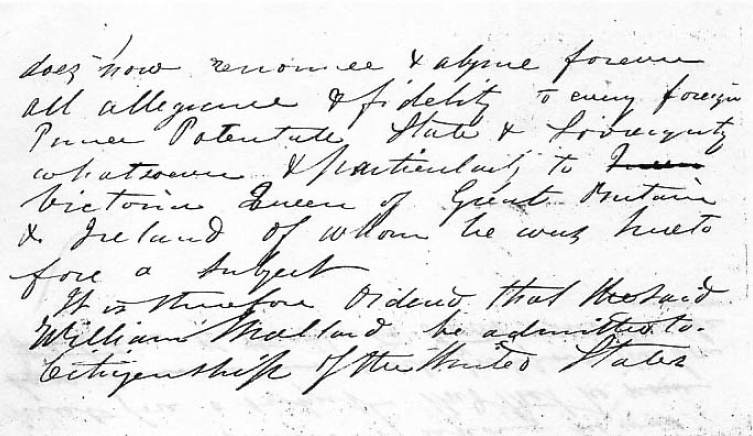 does now renounce & abjure forever
all allegiance & fidelity to every foreign
Prince Potentate State & Sovereignty
whatsoever & particularly to Queen
Victoria Queen of Great Britain
& Ireland of whom he was hereto
fore a subject
It is therefore Ordered that the said
William Mallard be admitted to
Citizenship of the United States